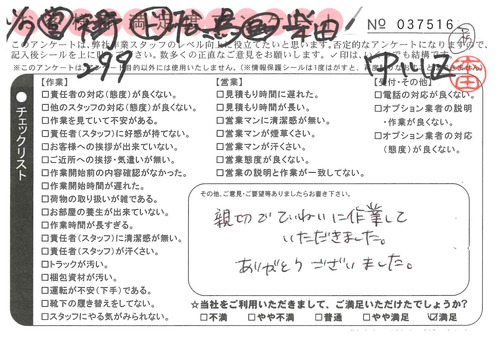 No 037516
このアンケートは、弊社作業スタッフのレベル向上に役立てたいと思います。否定的なアンケートになりますので、
記入後シールを上に貼って下さい。数多くの正直なご意見をお願いします。✓印は、いくつでも結構です。
599
中川区
チェックリスト
【作業】
□責任者の対応(態度)が良くない。
□他のスタッフの対応(態度)が良くない。
□作業を見ていて不安がある。
□責任者(スタッフ)に好感が持てない。
□お客様への挨拶が出来ていない。
□ご近所への挨拶・気遣いが無い。
□作業開始前の内容確認がなかった。
□作業開始時間が遅れた。
□荷物の取り扱いが雑である。
□お部屋の養生が出来ていない。
□作業時間が長すぎる。
□責任者(スタッフ)に清潔感が無い。
□責任者(スタッフ)が汗くさい。
□トラックが汚い。
□梱包資材が汚い。
□運転が不安(下手)である。
□靴下の履き替えをしてない。
□スタッフにやる気がみられない。
【営業】
□見積もり時間に遅れた。
□見積もり時間が長い。
□営業マンに清潔感が無い。
□営業マンが煙草くさい。
□営業マンが汗くさい。
□営業態度が良くない。
□営業の説明と作業が一致してない。
【受付・その他】
□電話の対応が良くない。
□オプション業者の説明
・作業が良くない。
□オプション業者の対応
(態度)が良くない。
その他、ご意見・ご要望等ありましたらお書き下さい。
親切でていねいに作業して
いただきました。
ありがとうございました。
☆当社をご利用いただきまして、ご満足いただけたでしょうか?
□不満 □やや不満 □普通 □やや満足 ☑満足